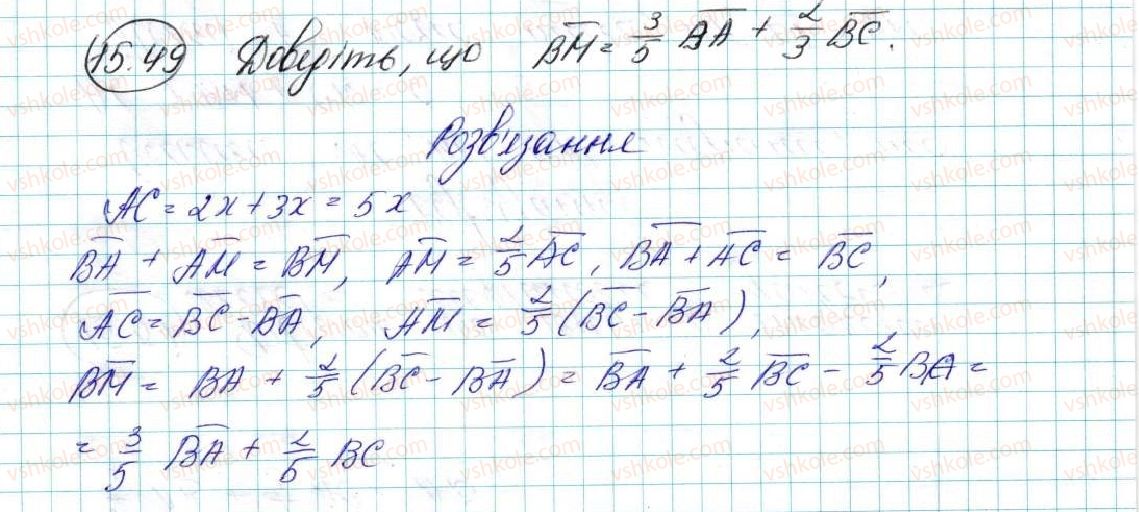 15.49 Доведіть, що $\overline{BM} = \frac{3}{5} \overline{BA} + \frac{2}{3} \overline{BC}$.
Розв'язання
AC = 2x + 3x = 5x
$\overline{BA} + \overline{AM} = \overline{BM}$, $\overline{AM} = \frac{2}{5} \overline{AC}$, $\overline{BA} + \overline{AC} = \overline{BC}$,
$\overline{AC} = \overline{BC} - \overline{BA}$, $\overline{AM} = \frac{2}{5} (\overline{BC} - \overline{BA})$,
$\overline{BM} = BA + \frac{2}{5} (\overline{BC} - \overline{BA}) = \overline{BA} + \frac{2}{5} \overline{BC} - \frac{2}{5} BA =$
$= \frac{3}{5} \overline{BA} + \frac{2}{5} BC$
vshkole.com